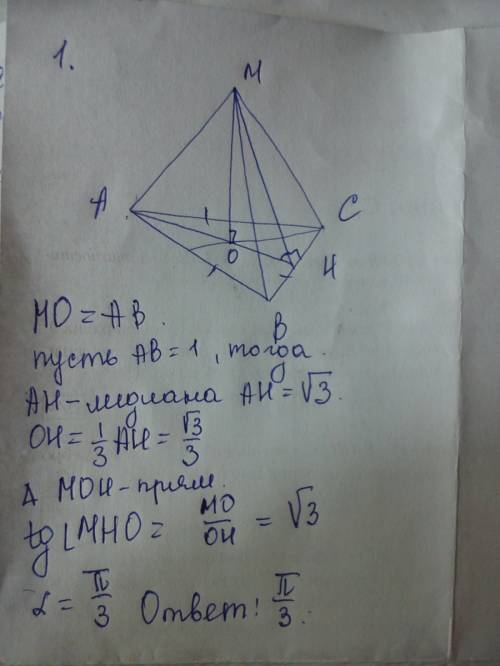 1.
M
A
C
O
H
B
MO = AB.
пусть AB = 1, тогда.
AH - медиана AH = √3.
OH = 1/3 AH = √3/3
Δ MOH - прям.
tg ∠MHO = MO/OH = √3
α = π/3 Ответ: π/3.